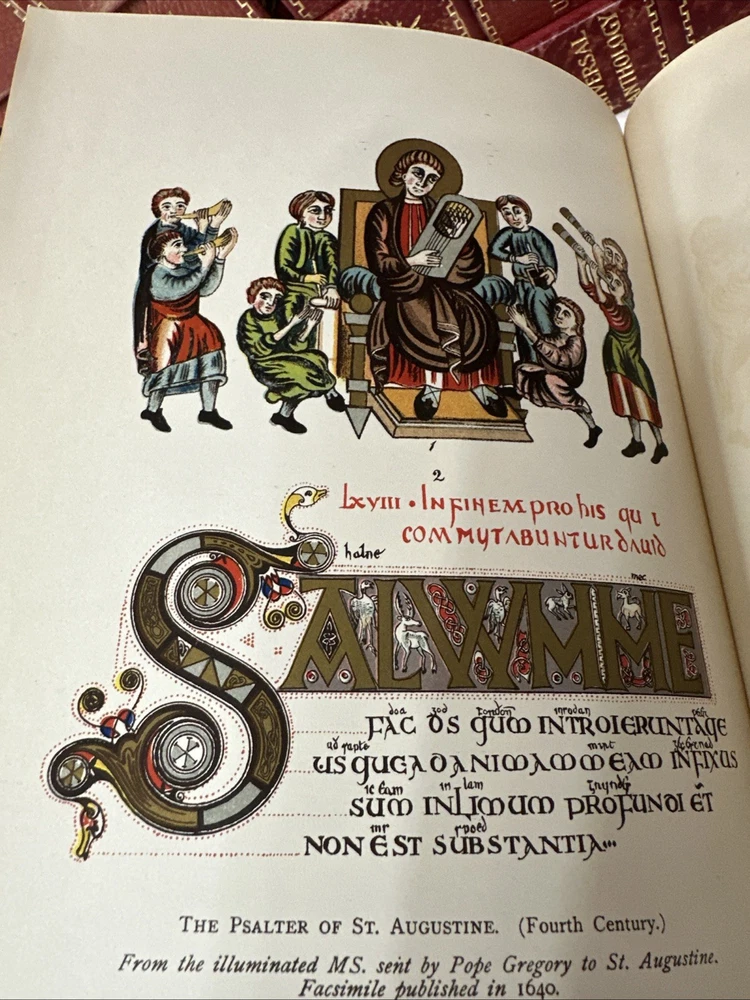 UNIVERSAL
ANTHOLOGY
1
2
Lxviii · In finem pro his qui
commutabuntur dauid
halne
mec
SALVVMME
doa god
FAC D̄S QUM INTROIERUNT AQE
US QUE AD ANIMAM MEAM INFIXUS
ic eam in lam
SUM IN LIMUM PROFUNDI ET
NON EST SUBSTANTIA...
THE PSALTER OF ST. AUGUSTINE. (Fourth Century.)
From the illuminated MS. sent by Pope Gregory to St. Augustine.
Facsimile published in 1640.